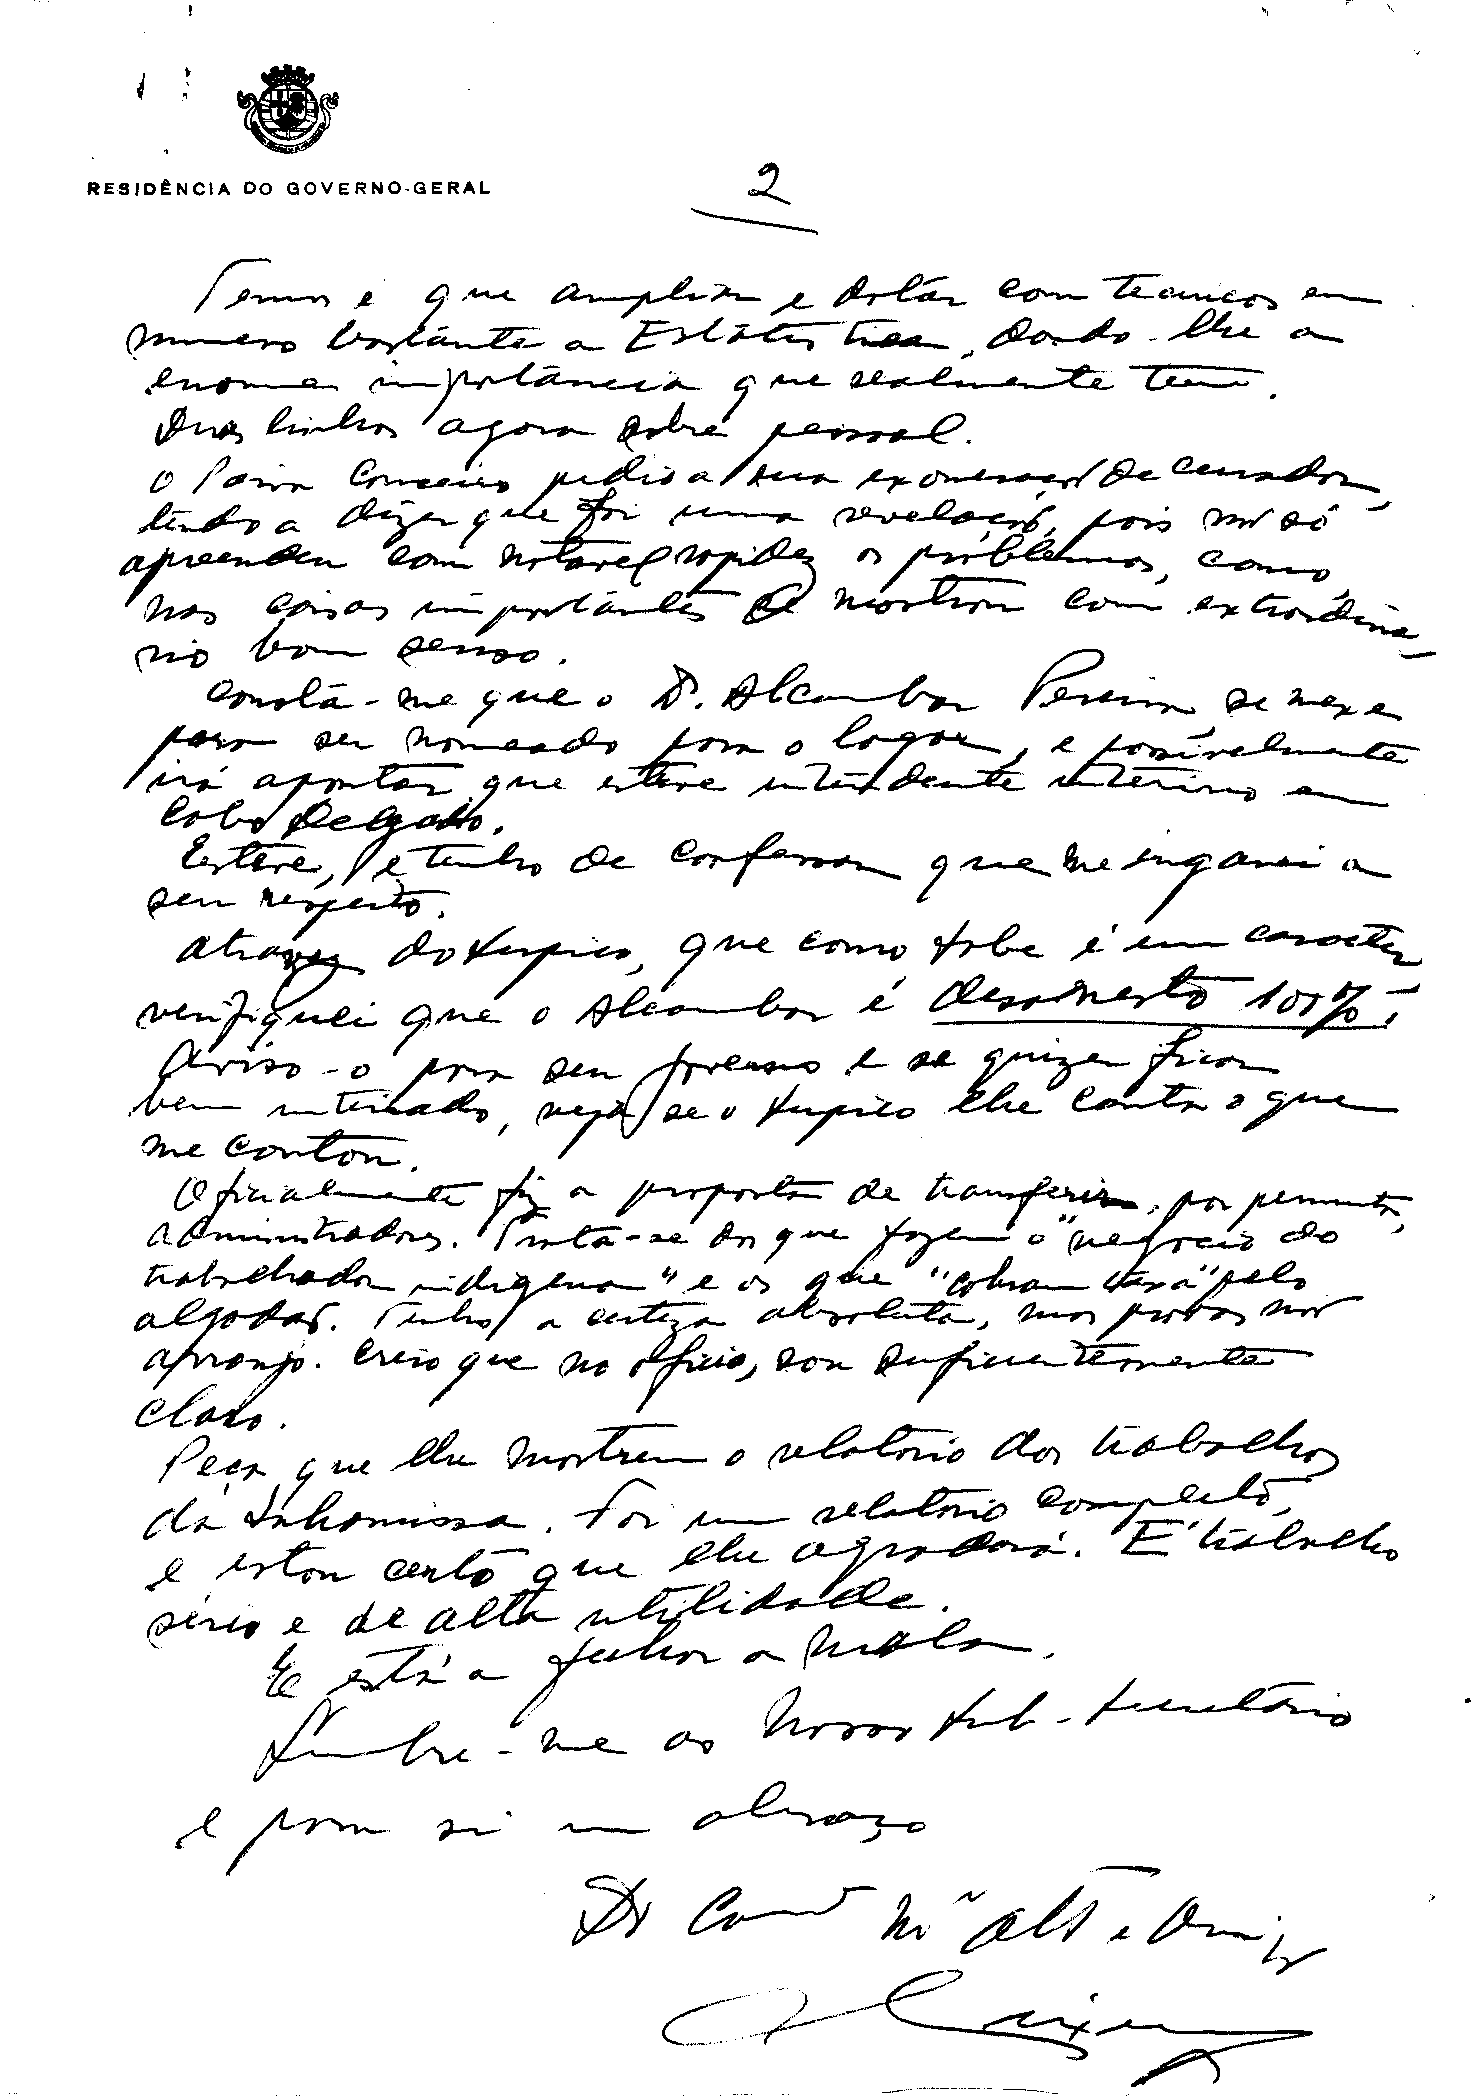 RESIDÊNCIA DO GOVERNO-GERAL
2
Temos é que ampliar e dotar com tecnicos em
numero bastante a Estátistica, dando-lhe a
enorme importância que realmente tem.
Duas linhas agora sobre pessoal.
O Paiva pediu a sua exoneração de curador,
tendo a dizer que foi uma revelação, pois não só
apreendeu com notavel rapidez os problemas, como
nas coisas importantes se mostrou com extraordiná
rio bom senso.
Consta-me que o Dr. Alcambar Pereira se mexe
para ser nomeado para o lugar, e possivelmente
irá apontar que esteve intendente interino em
Cabo Delgado.
Esteve, e tenho de confessar que me enganei a
seu respeito.
Através do, que como sabe é um caracter
verifiquei que o Alcambar é desonesto 100%.
Aviso-o para seu governo e se quizer ficar
bem inteirado, veja se o lhe conta o que
me contou.
Oficialmente fiz a proposta de transferir, por permuta,
administradores. Trata-se dos que fazem o "negocio do
trabalhador indigena" e os que "cobram taxa" pelo
algodão. Tenho a certeza absoluta, mas provas não
arranjo. Creio que no oficio, sou suficientemente
claro.
Peça que lhe mostrem o relatório dos trabalhos
da Inhamissa. Foi um relatório completo,
e estou certo que lhe agradará. É trabalho
sério e de alta utilidade.
E está a fechar a mala.
Lembre-me ao nosso Sub-Secretário
e para si um abraço
Do Cam Mto Atto e Amigo